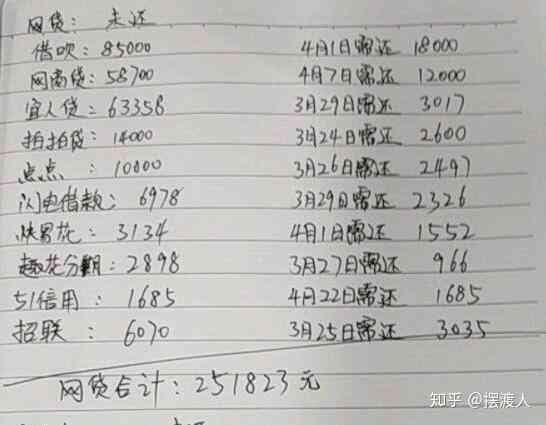 网贷： 未还
借呗：85000 4月1日需还 18000
网商贷：58700 4月7日需还 12000
宜人贷：63358 3月29日需还 3017
拍拍贷：14000 3月24日需还 2600
点点：10000 3月26日需还 2497
闪电借款：6978 3月29日需还 2326
快易花：3134 4月1日需还 1552
趣花分期：2898 3月27日需还 966
51信用：1685 4月22日需还 1685
招联：6070 3月25日需还 3035
网贷合计：251823元
知乎 @摆渡人